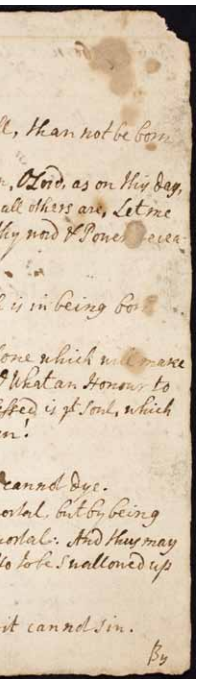 ll, than not be born
O Lord, as on this day,
all others are, Let me
thy word & Power
is in being bo
one which will make
What an Honour to
ssed is yt Soul, which
n!
cannot dye.
ortal, but by being
mortal. And thus may
to be Swallowed up
it cannot sin.
By